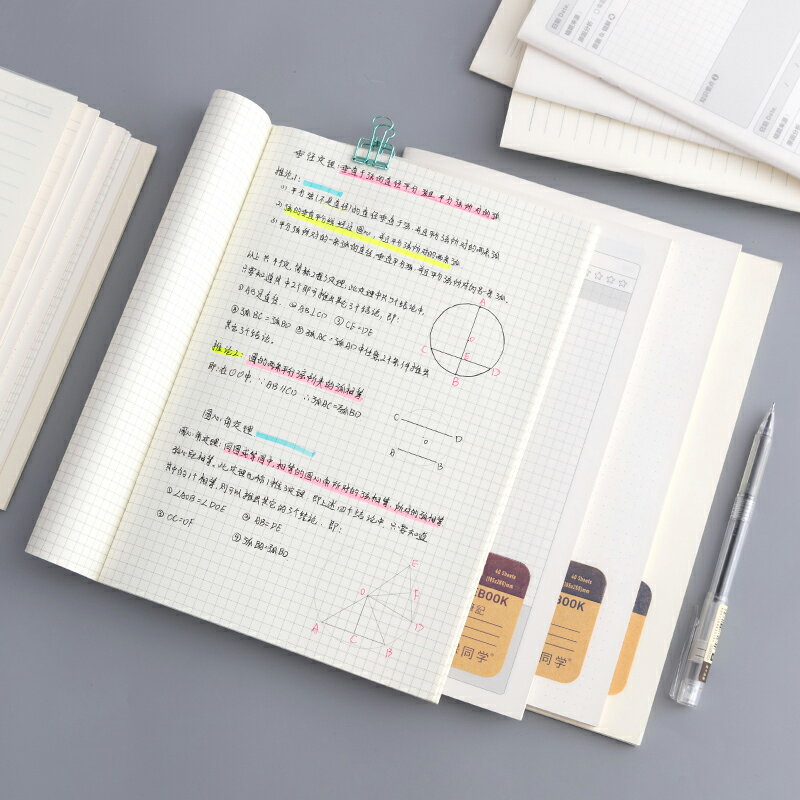 垂径定理:垂直于弦的直径平分弦且平分弦所对的弧
推论1:
1) 平分弦(不是直径)的直径垂直于弦,并且平分弦所对的两条弧
2) 弦的垂直平分线经过圆心,并且平分弦所对的两条弧
3) 平分弦所对的一条弧的直径,垂直平分弦,并且平分弦所对的另一条弧
以上共4个定理,简称2推3定理:此定理中共5个结论中,
只要知道其中2个即可推出其它3个结论,即:
①AB是直径 ②AB⊥CD ③CE=DE
④弧BC=弧BD ⑤弧AC=弧AD 中任意2个条件推出
其它3个结论。
推论2:圆的两条平行弦所夹的弧相等
即:在⊙O中,∵AB∥CD ∴弧AC=弧BD
圆心角定理
圆心角定理:同圆或等圆中,相等的圆心角所对的弦相等,所对的弧相等
弦心距相等。此定理也称1推3定理,即上述四个结论中,只要知道
其中的1个相等,则可以推出其它的3个结论,即:
①∠AOB=∠DOE ②AB=DE
③OC=OF ④弧BA=弧BD
A
O
C
E
D
B
C
D
O
A
B
E
F
O
D
A
C
B
40 Sheets
BOOK
笔记
同学
40 Sheets
EBOOK
笔记
同学